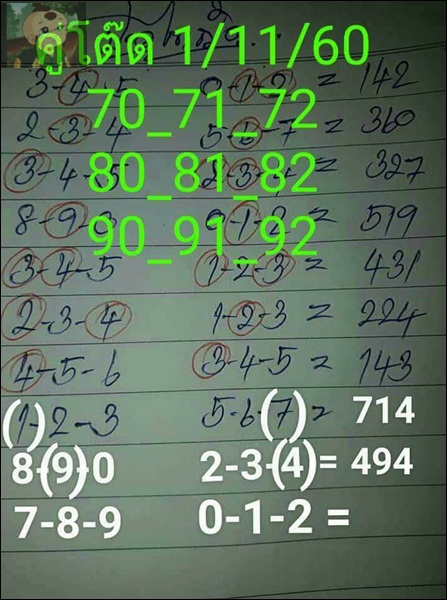 คู่โต๊ด 1/11/60
3-4-5 0-1-2 = 142
70_71_72
2-3-4 5-6-7 = 360
80_81_82
3-4-5 2-3-4 = 327
8-9- 0-1-2 = 519
90_91_92
3-4-5 1-2-3 = 431
2-3-4 1-2-3 = 224
4-5-6 3-4-5 = 143
(1)-2-3 5-6-(7) = 714
8-(9)-0 2-3-(4) = 494
7-8-9 0-1-2 =